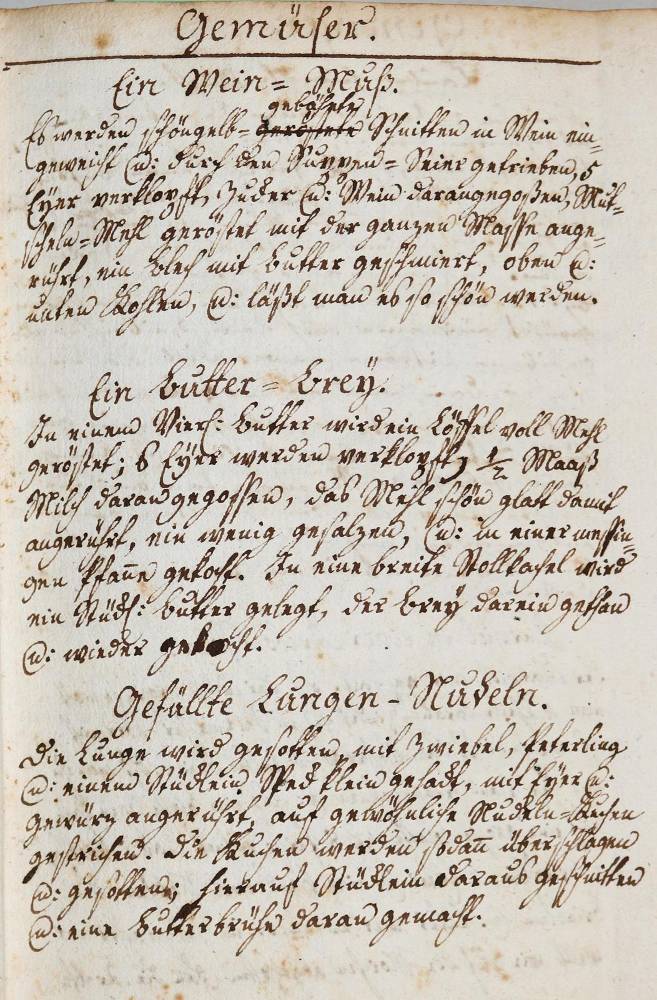 Gemüser.
Ein Wein= Muß.
gebähete
Es werden schöngelb= geröstete Schnitten in Wein ein=
geweicht u: durch den Suppen= Seier getrieben, 5
Eyer verklopft, Zucker u: Wein darangegoßen, Mut=
scheln=Mehl geröstet mit der ganzen Masse ange=
rührt, ein Blech mit Butter geschmiert, oben u:
unten Kohlen, u: läßt man es so schön werden.
Ein Butter= Brey.
In einem Vierl: Butter wird ein Löffel voll Mehl
geröstet; 6 Eyer werden verklopft, 1/2 Maaß
Milch daran gegossen, das Mehl schön glatt damit
angerührt, ein wenig gesalzen, u: in einer messin=
gen Pfanne gekocht. In eine breite Stollkachel wird
ein Stückl: Butter gelegt, der Brey darein gethan
u: wieder gekocht.
Gefüllte Lungen-Nudeln.
Die Lunge wird gesotten, mit Zwiebel, Peterling
u: einem Stücklein Speck klein gehackt, mit Eyer u:
Gewürz angerührt, auf gewöhnliche Nudeln=Kuchen
gestrichen. Die Kuchen werden sodann überschlagen
u: gesotten; hierauf Stücklein daraus geschnitten
u: eine Butterbrühe daran gemacht.